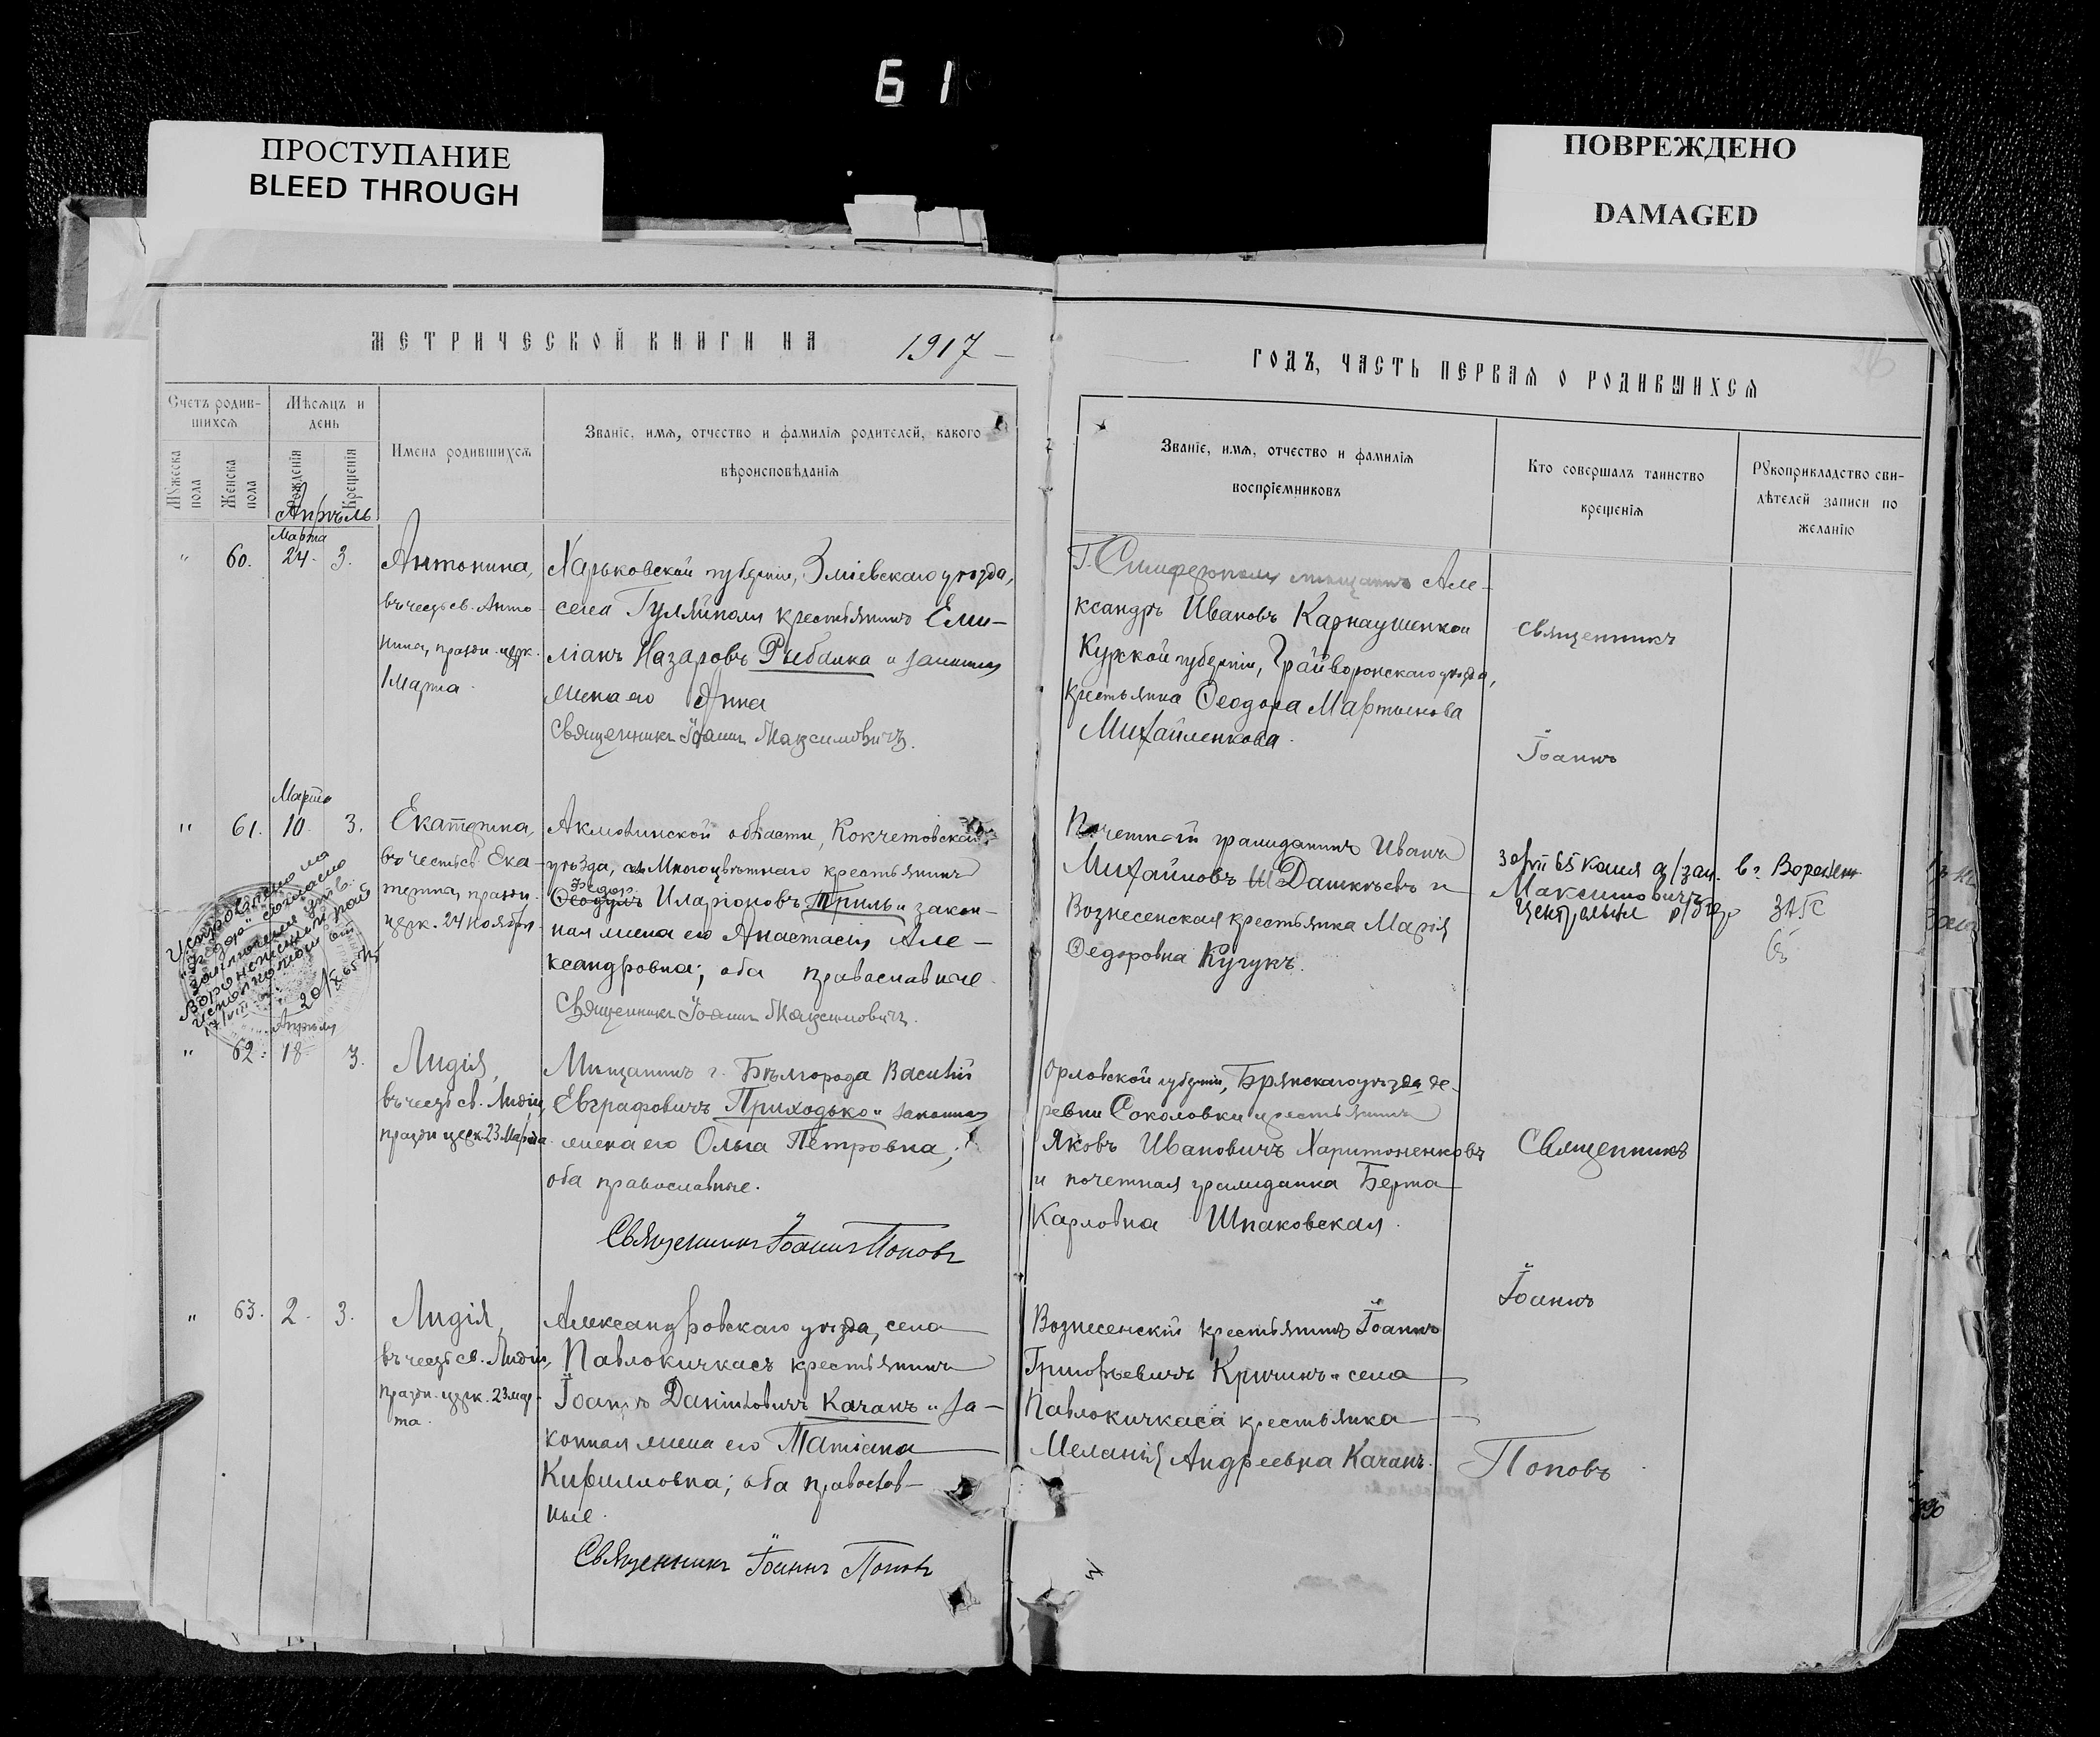 61
ПРОСТУПАНИЕ
BLEED THROUGH
ПОВРЕЖДЕНО
DAMAGED
МЕТРИЧЕСКОЙ КНИГИ НА 1917
Счетъ родив-
шихся
Мѣсяцъ и
день
Имена родившихся
Званіе, имя, отчество и фамилія родителей, какого
вѣроисповѣданія
Мужеска пола
Женска пола
Рожденія
Крещенія
Апрѣль
Марта
" 60. 24. 3.
Антонина,
въ честь св. Анто-
нина, празд. церк.
1 Марта.
Харьковской губерніи, Зміевскаго уѣзда,
села Гуляйполя крестьянинъ Еми-
ліанъ Назаровъ Рыбалка и законная
жена его Анна
Священникъ Іоаннъ Максимовичъ.
Марта
" 61. 10. 3.
Екатерина,
въ честь св. Ека-
терина, празд.
церк. 24 Ноября.
Акмолинской области, Кокчетовскаго
уѣзда, с. Многоцвѣтнаго крестьянинъ
Федор
Ѳеодулъ Иларіоновъ Триль и закон-
ная жена его Анастасія Але-
ксандровна; оба православные.
Священникъ Іоаннъ Максимовичъ.
Исправлено на
"Федор" согласно
заключения утв.
Воронежским гор
исполкомом от
17/VIII 20/X 65
Апрѣля
" 62. 18 3.
Лидія,
въ честь св. Лидіи,
празд. церк. 23 Марта
Мѣщанинъ г. Бѣлгорода Василій
Евграфовичъ Приходько и законная
жена его Ольга Петровна;
оба православные.
Священникъ Іоаннъ Поповъ
" 63. 2. 3.
Лидія,
въ честь св. Лидіи,
празд. церк. 23 мар-
та.
Александровскаго уѣзда, села
Павлокичкасъ крестьянинъ
Іоаннъ Даніиловичъ Качанъ и за-
конная жена его Татіана
Кирилловна; оба православ-
ные.
Священникъ Іоаннъ Поповъ
ГОДЪ, ЧАСТЬ ПЕРВАЯ О РОДИВШИХСЯ
26
Званіе, имя, отчество и фамилія
воспріемниковъ
Кто совершалъ таинство
крещенія
Рукоприкладство сви-
дѣтелей записи по
желанію
Г. Симферополя мѣщанинъ Але-
ксандръ Ивановъ Карнаушенко и
Курской губерніи, Грайворонскаго уѣзда,
крестьянка Ѳеодора Мартынова
Михайленкова.
Священникъ
Іоаннъ
Почетный гражданинъ Иванъ
Михайловъ Дашкѣевъ и
Вознесенская крестьянка Марія
Ѳедоровна Кугукъ.
Максимовичъ
ЗАГС
Орловской губерніи, Брянскаго уѣзда де-
ревни Соколовки крестьянинъ
Яковъ Ивановичъ Харитоненковъ
и почетная гражданка Берта
Карловна Шпаковская.
Священникъ
Іоаннъ
Поповъ
Вознесенскій крестьянинъ Іоаннъ
Григорьевичъ Кричинъ и села
Павлокичкаса крестьянка
Меланія Андреевна Качанъ.